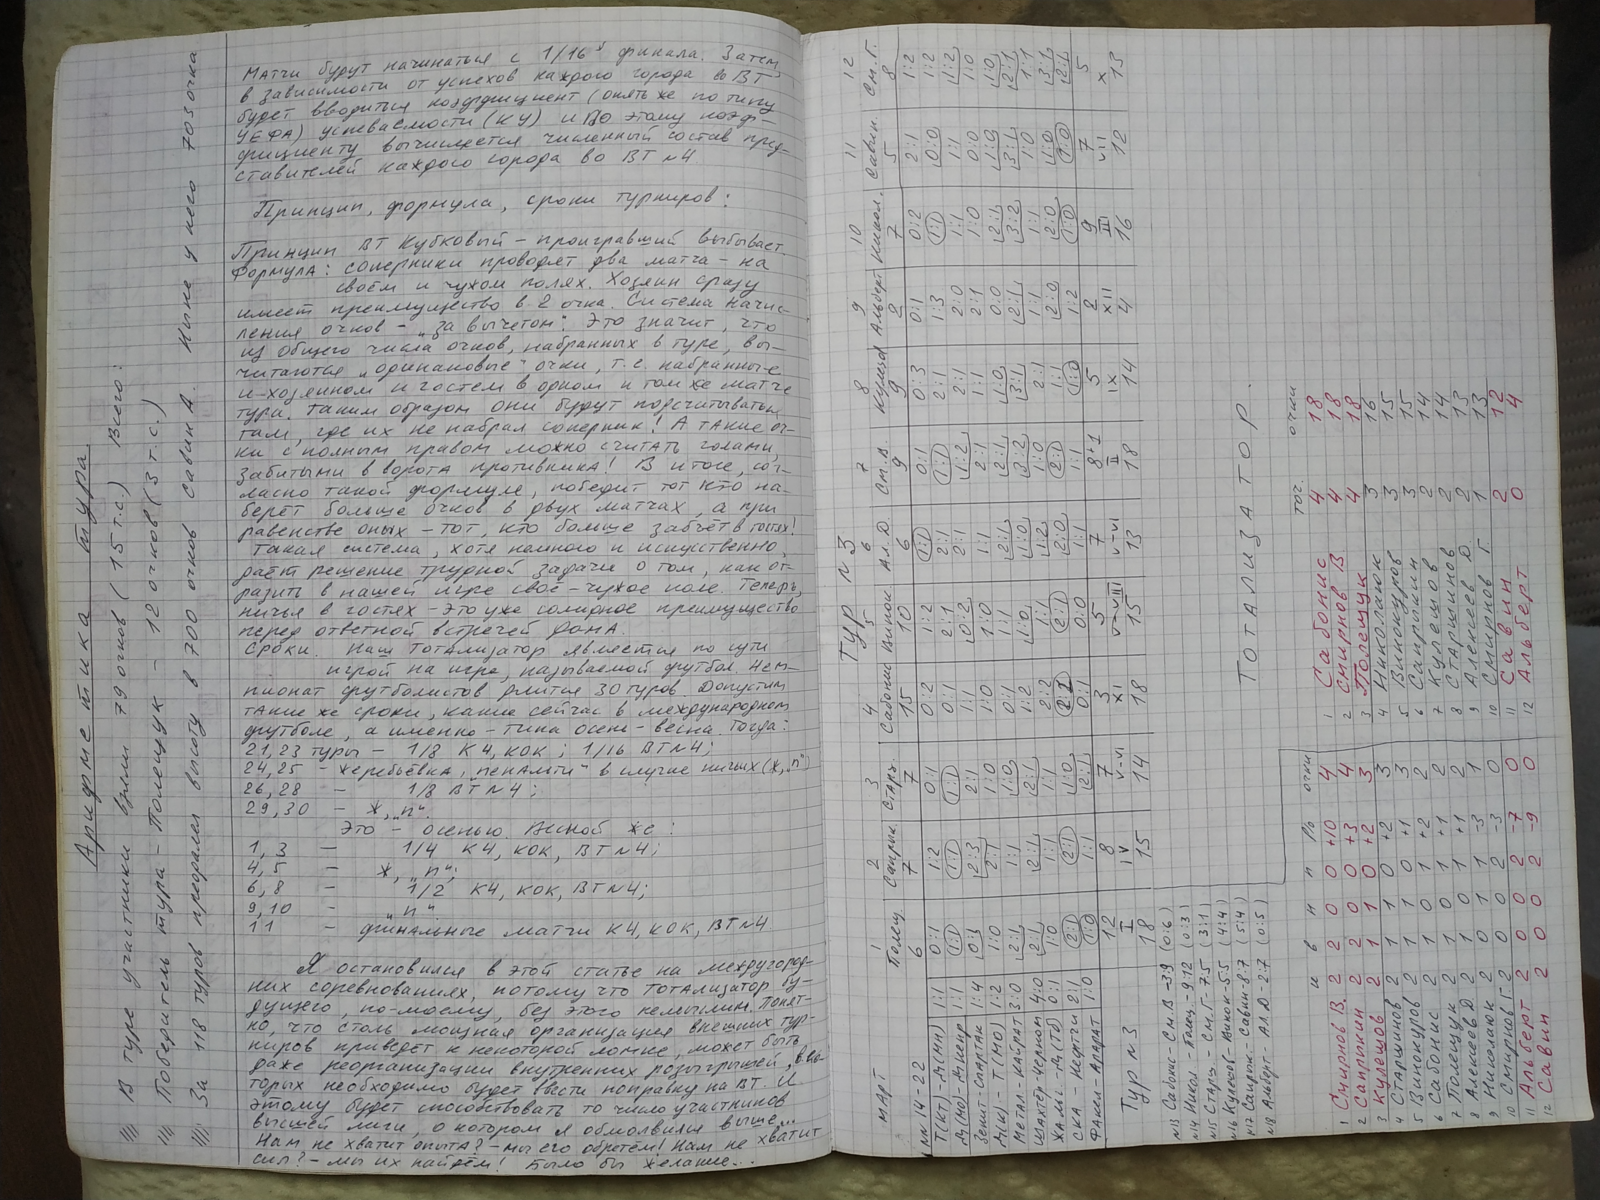 Арифметика тура
В туре участники взяли 79 очков (15 т.с.) Всего:
Победитель тура – Полещук – 12 очков (3 т.с.)
За 118 туров преодолел высоту в 700 очков Савин А. Ныне у него 703 очка
Матчи будут начинаться с 1/16 финала. Затем,
в зависимости от успехов каждого города во ВТ
будет вводиться коэффициент (опять же по типу
УЕФА) успеваемости (КУ) и по этому коэф-
фициенту вычисляется численный состав пред-
ставителей каждого города во ВТ №4
Принцип, формула, сроки турниров:
Принцип ВТ Кубковый – проигравший выбывает
Формула: соперники проводят два матча – на
своём и чужом полях. Хозяин сразу
имеет преимущество в 2 очка. Система начис-
ления очков – „за вычетом". Это значит, что
из общего числа очков, набранных в туре, вы-
читаются „одинаковые" очки, т.е. набранные
и хозяином и гостем в одном и том же матче
тура. Таким образом они будут подсчитываться
там, где их не набрал соперник! А такие оч-
ки с полным правом можно считать голами,
забитыми в ворота противника! В итоге, сог-
ласно такой формуле, победит тот кто на-
берёт больше очков в двух матчах, а при
равенстве оных – тот, кто больше забьёт в гостях!
Такая система, хотя немного и искуственно,
даёт решение трудной задачи о том, как от-
разить в нашей игре своё – чужое поле. Теперь,
ничья в гостях – это уже солидное преимущество
перед ответной встречей дома.
Сроки. Наш тотализатор является по сути
игрой на игре, называемой футбол. Чем-
пионат футболистов длится 30 туров. Допустим
такие же сроки, какие сейчас в международном
футболе, а именно – типа осень – весна. Тогда:
21, 23 туры – 1/8 КЧ, КОК; 1/16 ВТ №4;
24, 25 – жеребьёвка, „пенальти" в случае ничьих (ж, „п")
26, 28 – 1/8 ВТ №4;
29, 30 – ж, „п".
Это – осенью. Весной же:
1, 3 – 1/4 КЧ, КОК, ВТ №4;
4, 5 – ж, „п";
6, 8 – 1/2 КЧ, КОК, ВТ №4;
9, 10 – „п".
11 – финальные матчи КЧ, КОК, ВТ №4
Я остановился в этой статье на междугород-
них соревнованиях, потому что Тотализатор бу-
дущего, по-моему, без этого немыслим. Понят-
но, что столь мощная организация внешних тур-
ниров приведет к некоторой ломке, может быть
даже реорганизации внутренних розыгрышей, в ко-
торых необходимо будет ввести поправку на ВТ. И
этому будет способствовать то число участников
высшей лиги, о котором я обмолвился выше...
Нам не хватит опыта? – мы его обретём! Нам не хватит
сил? – мы их найдём! Было бы желание...
Тур №3
1 2 3 4 5 6 7 8 9 10 11 12
март Полещ. Сапрык. Старш. Сабонис Винок Ал.Д См.В Кулеш Альберт Никол. Савин. См.Г.
№№ 14-22 6 7 7 15 10 6 9 9 2 7 5 8
Т(Кт) – Д(Мн) 1:1 0:1 1:2 0:1 0:2 1:2 1:1 0:1 0:3 0:1 0:2 2:1 1:2
Д(Мо) – Днепр 1:1 1:1 1:1 1:1 0:1 2:1 2:1 1:1 2:1 1:3 1:1 0:0 1:2
Зенит – Спартак 1:4 0:1 2:3 2:1 1:1 0:2 2:1 1:2 2:1 2:0 1:1 1:1 1:2
Д(Ки) – Т(Мо) 1:2 1:0 2:1 1:0 1:0 1:0 1:1 2:1 1:1 2:1 1:0 0:0 1:0
Метал – Кайрат 3:0 2:1 1:1 1:0 0:1 1:1 2:1 2:1 1:0 0:0 2:1 1:0 1:0
Шахтёр – Черном 4:0 2:1 2:1 2:1 1:2 1:0 1:0 3:2 3:1 2:1 3:2 3:1 2:1
Жальг. – Д(Тб) 0:1 1:0 1:1 1:1 2:2 1:1 1:2 1:0 2:1 1:1 1:1 1:0 1:1
СКА – Нефтчи 2:1 2:1 2:1 1:0 2:1 2:1 2:0 2:1 1:1 2:0 2:0 1:0 3:1
Факел – Арарат 1:0 1:0 1:1 2:1 0:1 0:0 1:1 1:1 1:0 1:2 1:0 1:0 2:1
12 8 7 3 5 7 8+1 5 2 9 7 5
I IV V-VI XI V-VI II IX XII III VII X
18 15 14 18 15 13 18 14 4 16 12 13
Тур №3
№13 Сабонис – См.В – 3:9 (0:6)
№14 Никол – Полещ. – 9:12 (0:3)
№15 Старш. – См.Г – 7:5 (3:1)
№16 Кулешов – Винок – 5:5 (4:4)
№17 Сапрык. – Савин – 8:7 (5:4)
№18 Альберт – Ал.Д – 2:7 (0:5)
и в н п р/о очки
1 Смирнов В. 2 2 0 0 +10 4
2 Сапрыкин 2 2 0 0 +3 4
3 Кулешов 2 1 1 0 +2 3
4 Старшинов 2 1 1 0 +2 3
5 Винокуров 2 1 1 0 +1 3
6 Сабонис 2 1 0 1 +2 2
7 Полещук 2 1 0 1 +1 2
8 Алексеев Д 2 1 0 1 +1 2
9 Николаюк 2 0 1 1 -3 1
10 Смирнов Г. 2 0 0 2 -3 0
11 Альберт 2 0 0 2 -7 0
12 Савин 2 0 0 2 -9 0
ТОТАЛИЗАТОР.
точ. очки
1 Сабонис 4 18
2 Смирнов В 4 18
3 Полещук 4 18
4 Николаюк 3 16
5 Винокуров 3 15
6 Сапрыкин 3 15
7 Кулешов 2 14
8 Старшинов 2 14
9 Алексеев Д 2 13
10 Смирнов Г. 1 13
11 Савин 2 12
12 Альберт 0 4